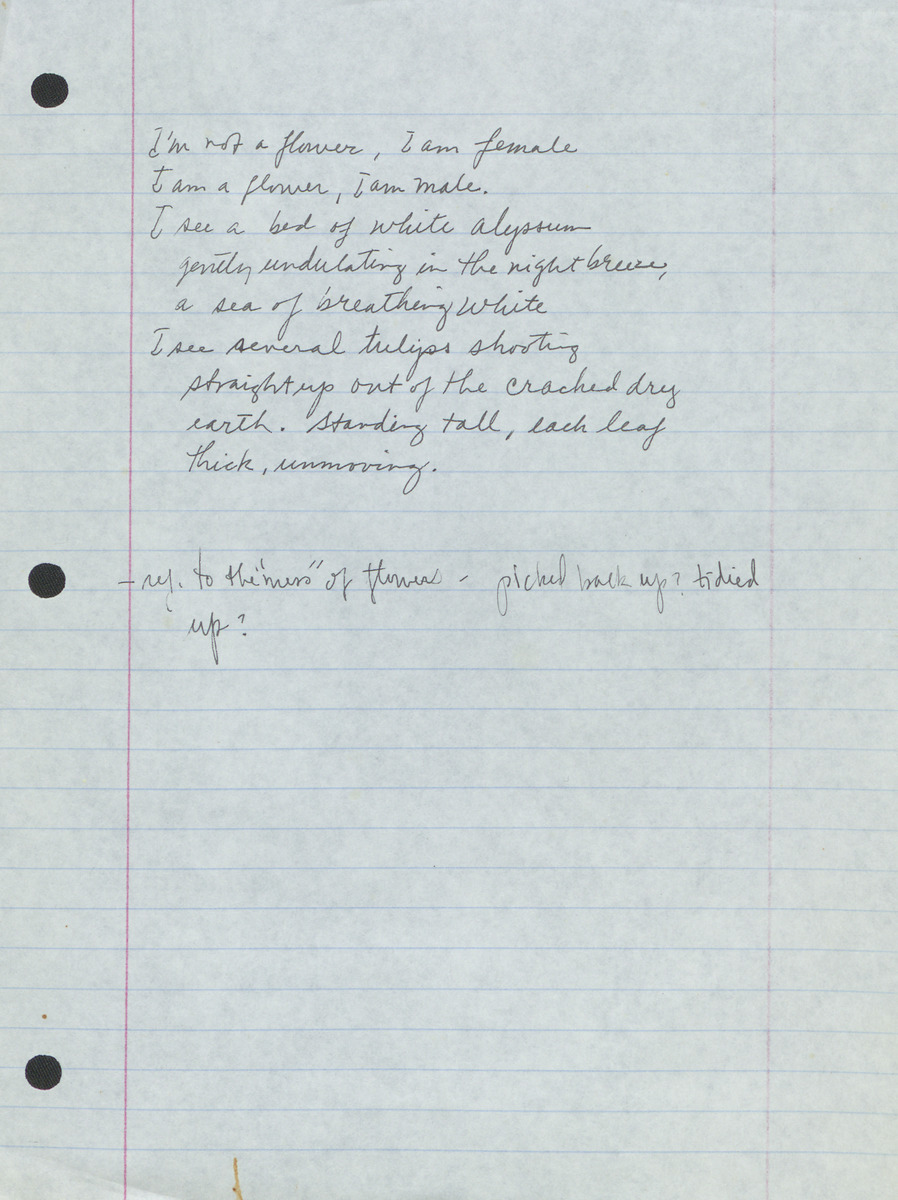 I'm not a flower, I am female
I am a flower, I am male.
I see a bed of white alyssum
gently undulating in the night breeze,
a sea of breathing white
I see several tulips shooting
straight up out of the cracked dry
earth. Standing tall, each leaf
thick, unmoving.
- ref. to the "mess" of flowers - picked back up? tidied
up?